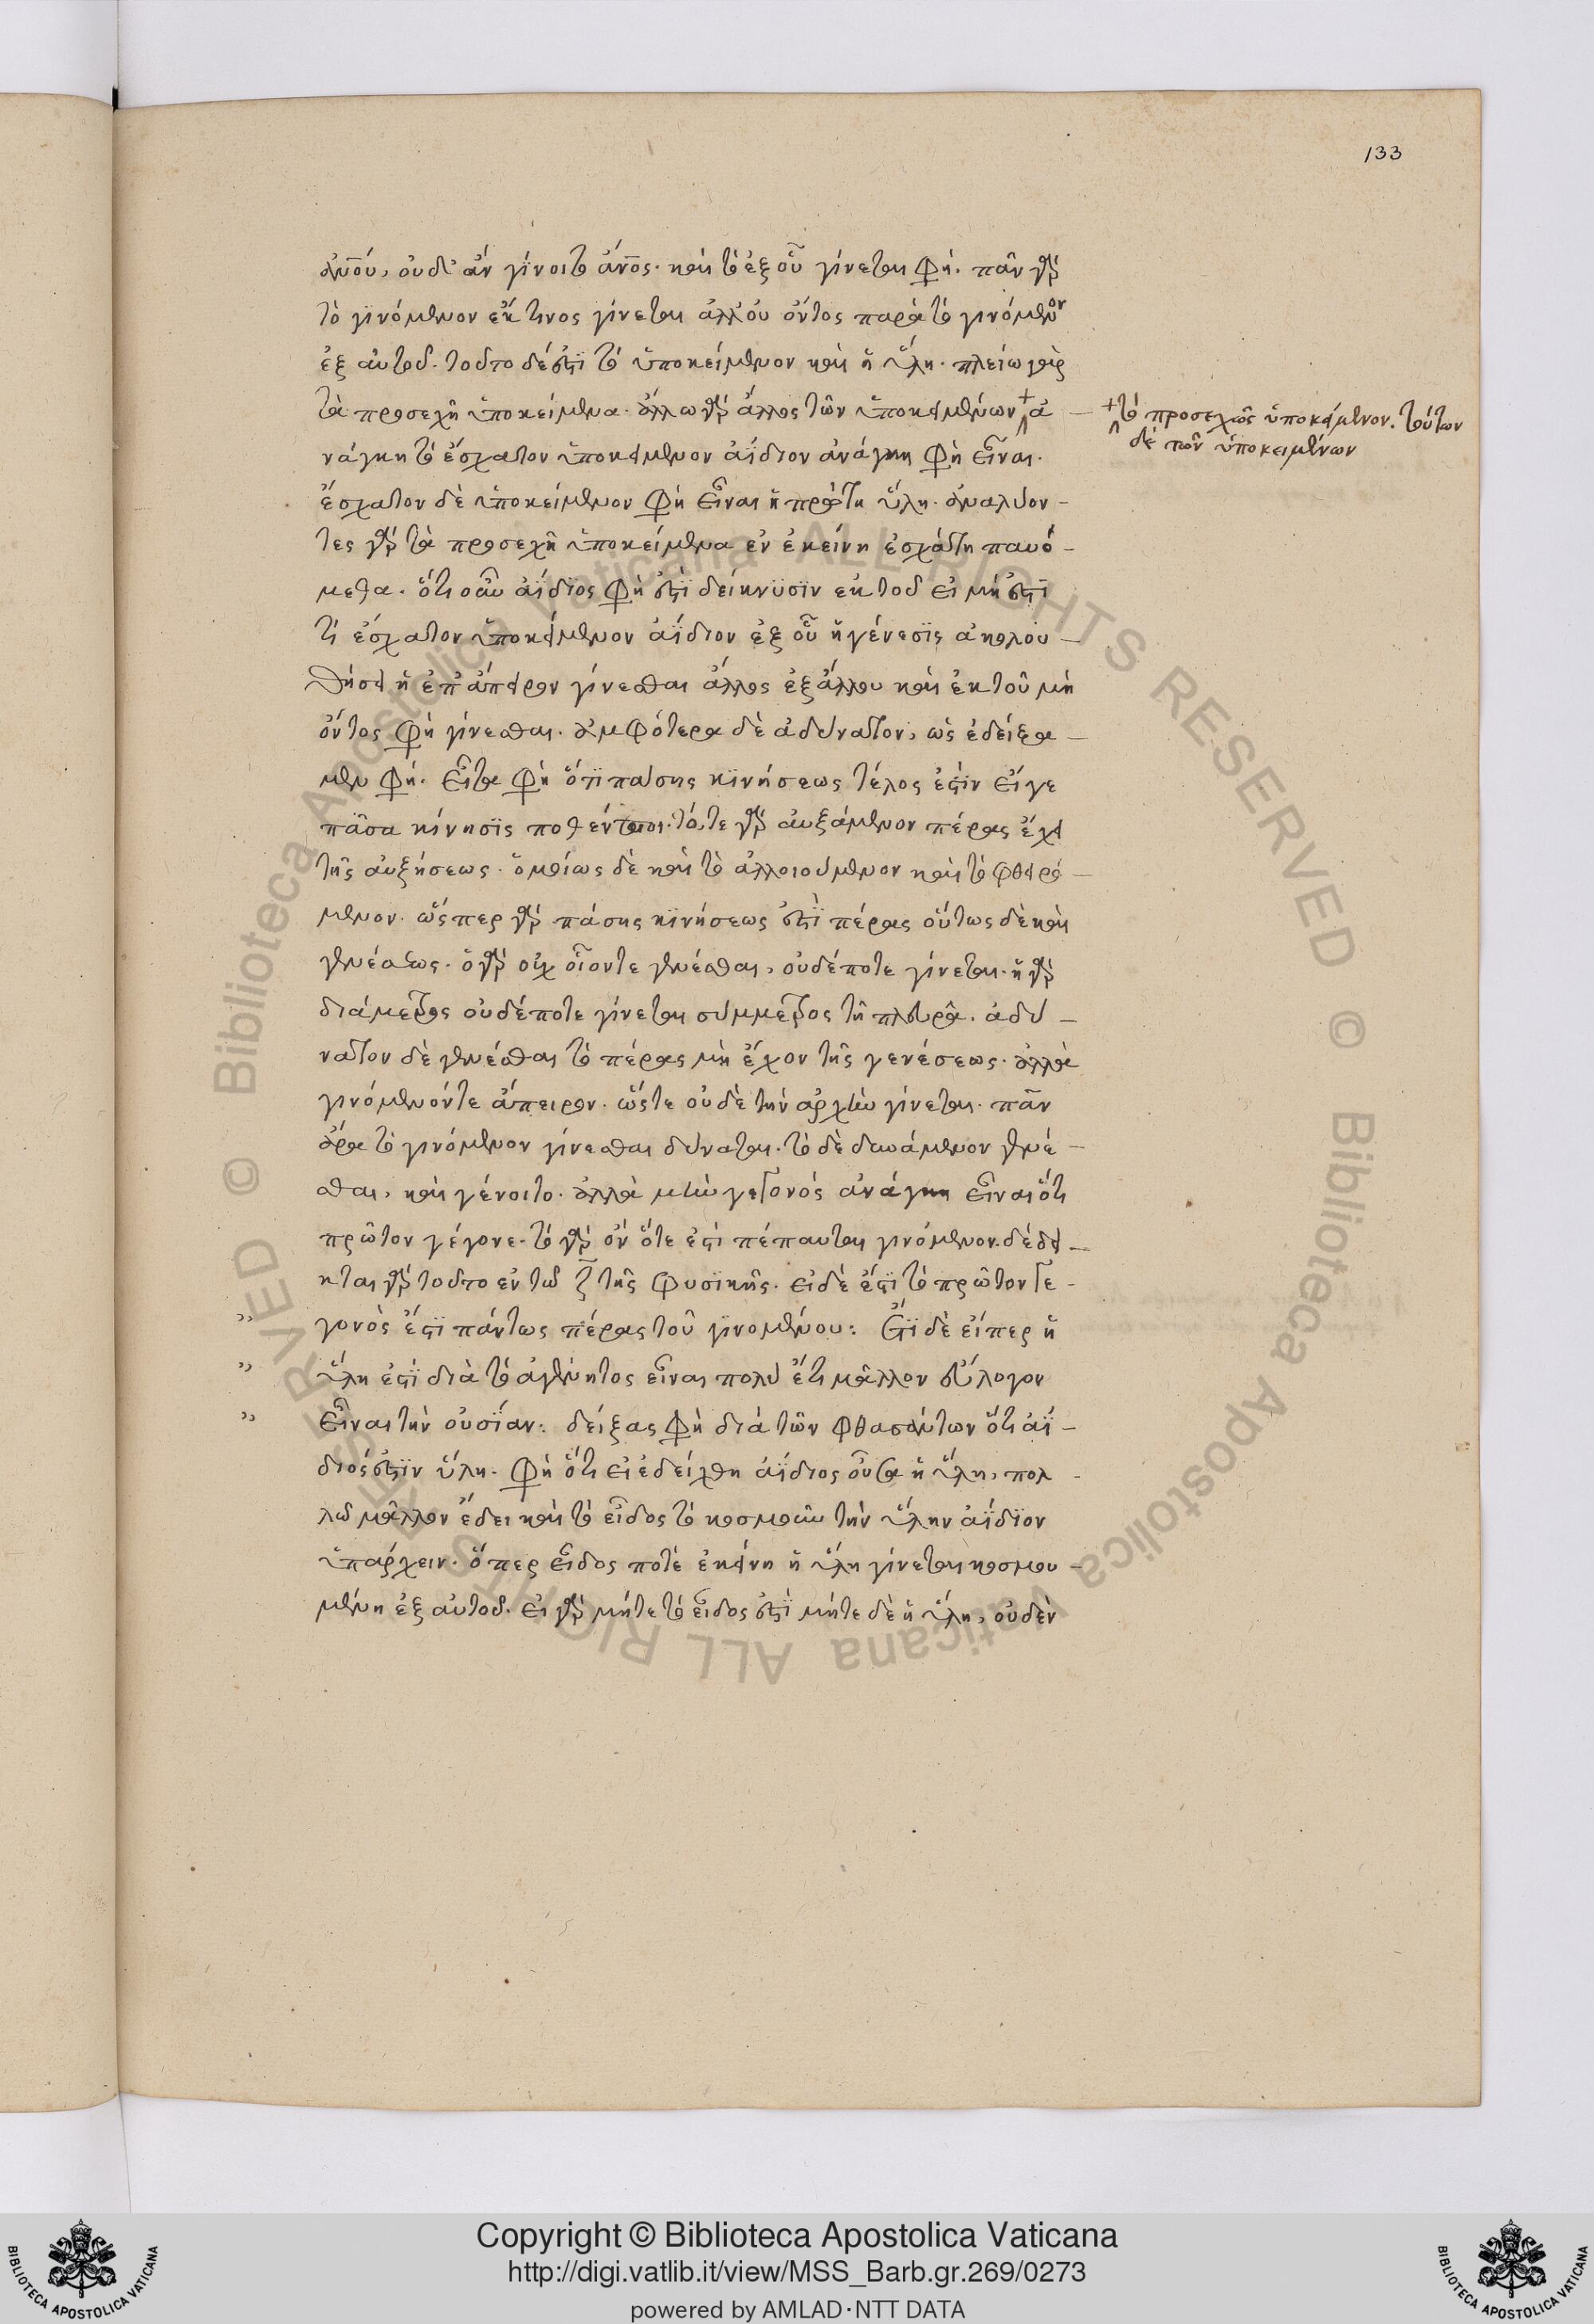 133
ἀνου, οὐδ' ἂν γίνοιτο ἄνος. καὶ τὸ ἐξ οὗ γίνεται φη. πᾶν γὰρ
τὸ γινόμενον ἔκ τινος γίνεται ἄλλου ὄντος παρὰ τὸ γινόμενον
ἐξ αὐτοῦ. τοῦτο δέ ἐστι τὸ ὑποκείμενον καὶ ἡ ὕλη. πλείω γὰρ
τὰ προσεχῆ ὑποκείμενα. ἄλλω γὰρ ἄλλος τῶν ὑποκειμένων + ἀ
+ τὸ προσεχῶς ὑποκείμενον. τούτων
δὲ τῶν ὑποκειμένων
νάγκη τὸ ἔσχατον ὑποκείμενον ἀΐδιον ἀνάγκη φὴ εἶναι.
ἔσχατον δὲ ὑποκείμενον φὴ εἶναι ἡ πρώτη ὕλη. ἀναλύον-
τες γὰρ τὰ προσεχῆ ὑποκείμενα ἐν ἐκείνη ἐσχάτη παυό-
μεθα. ὅτι οὖν ἀΐδιος φὴ ἐστὶ δείκνυσιν ἐκ τοῦ εἰ μή ἐστι
τὶ ἔσχατον ὑποκείμενον ἀΐδιον ἐξ οὗ ἡ γένεσις ἀκολου-
θήσει ἢ ἐπ' ἄπειρον γίνεσθαι ἄλλος ἐξ ἄλλου καὶ ἐκ τοῦ μὴ
ὄντος φὴ γίνεσθαι. ἀμφότερα δὲ ἀδύνατον, ὡς ἐδείξα-
μεν φη. εἶτα φὴ ὅτι πάσης κινήσεως τέλος ἐστὶν εἴγε
πᾶσα κίνησις ποθεν τό, τε γὰρ αὐξάμενον πέρας ἔχει
τῆς αὐξήσεως. ὁμοίως δὲ καὶ τὸ ἀλλοιούμενον καὶ τὸ φθειρό-
μενον. ὥσπερ γὰρ πάσης κινήσεως ἐστὶ πέρας οὕτως δὲ καὶ
γενέσεως. ὃ γὰρ οὐχ οἷόντε γενέσθαι, οὐδέποτε γίνεται. ἡ γὰρ
διάμετρος οὐδέποτε γίνεται σύμμετρος τῆ πλευρᾶ. ἀδύ-
νατον δὲ γενέσθαι τὸ πέρας μὴ ἔχον τῆς γενέσεως. ἀλλὰ
γινόμενόντε ἄπειρον. ὥστε οὐδὲ τὴν ἀρχὴν γίνεται. πᾶν
ἄρα τὸ γινόμενον γίνεσθαι δύναται. τὸ δὲ δυνάμενον γενέ-
σθαι, καὶ γένοιτο. ἀλλὰ μὴν γεγονός ἀνάγκη εἶναι ὅτι
πρῶτον γέγονε. τὸ γὰρ ὂν ὅτε ἐστὶ πέπαυται γινόμενον. δέδει-
κται γὰρ τοῦτο ἐν τῶ ζ τῆς φυσικῆς. εἰ δὲ ἔστι τὸ πρῶτον γε-
γονὸς ἔστι πάντως πέρας τοῦ γινομένου: Ἔτι δὲ εἴπερ ἡ
ὕλη ἐστὶ διὰ τὸ ἀγένητος εἶναι πολὺ ἔτι μᾶλλον εὔλογον
εἶναι τὴν οὐσίαν: δείξας φὴ διὰ τῶν φθασάντων ὅτι ἀΐ-
διός ἐστιν ὕλη. φὴ ὅτι εἰ ἐδείχθη ἀΐδιος οὖσα ἡ ὕλη, πολ-
λῶ μᾶλλον ἔδει καὶ τὸ εἶδος τὸ κοσμοῦν τὴν ὕλην ἀΐδιον
ὑπάρχειν. ὅπερ εἶδος ποτὲ ἐκείνη ἡ ὕλη γίνεται κοσμου-
μένη ἐξ αὐτοῦ. εἰ γὰρ μήτε τὸ εἶδος ἐστὶ μήτε δὲ ἡ ὕλη, οὐδὲν
Copyright © Biblioteca Apostolica Vaticana
http://digi.vatlib.it/view/MSS_Barb.gr.269/0273
powered by AMLAD·NTT DATA